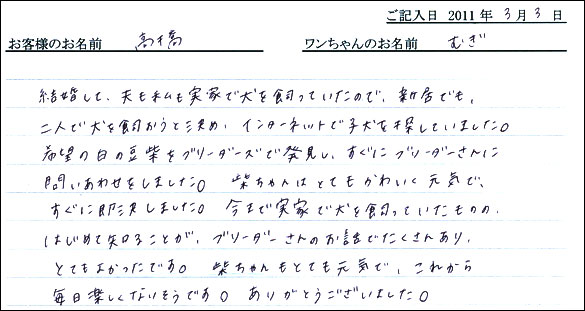 ご記入日 2011年 3月 3日
お客様のお名前 高橋 ワンちゃんのお名前 むぎ
結婚して、夫も私も実家で犬を飼っていたので、新居でも、
二人で犬を飼おうと決め、インターネットで子犬を探していました。
希望の白の豆柴をブリーダーズで発見し、すぐにブリーダーさんに
問いあわせをしました。 柴ちゃんはとてもかわいく元気で、
すぐに即決しました。 今まで実家で犬を飼っていたものの、
はじめて知ることが、ブリーダーさんのお話でたくさんあり、
とてもよかったです。 柴ちゃんもとても元気で、これから
毎日楽しくなりそうです。 ありがとうございました。